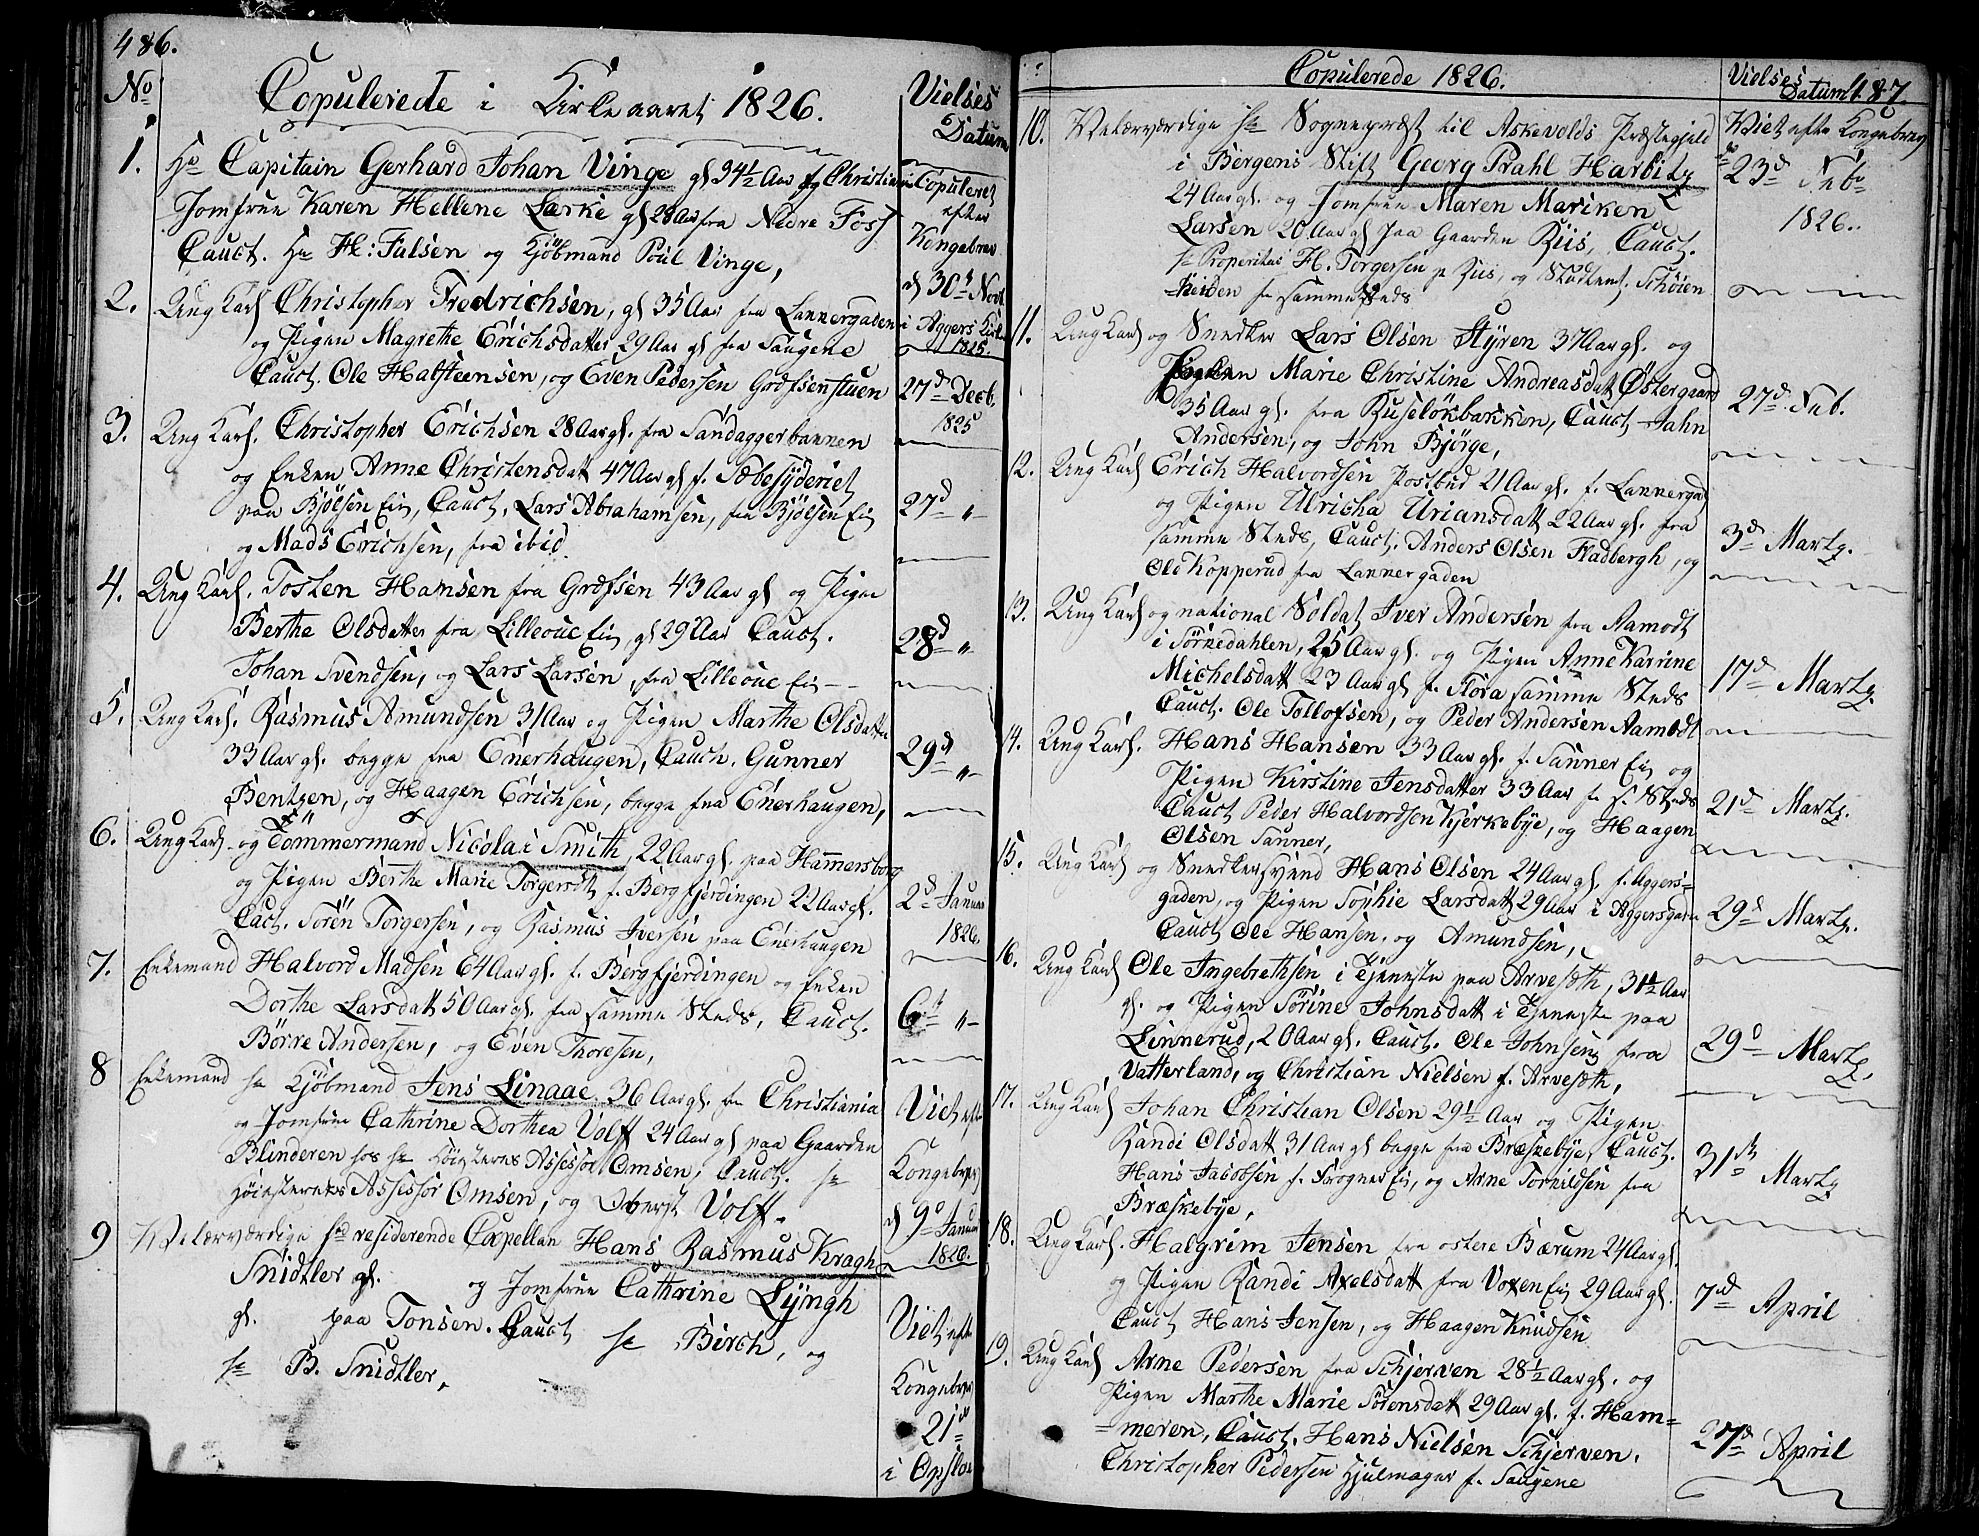 486.
No
Copulerede i Kirkeaaret 1826.
Vielses
Datum
1. Hr Capitain Gerhard Johan Vinge gl 34½ Aar fg Christiania
Jomfrue Karen Hellene Lærke gl 28 Aar fra Nedre Foss
Cauct. Hr H: Falsen og Kjöbmand Poul Vinge,
Copuleret
efter
Kongebrev
d 30t Novb
i Aggers Kirke
1825.
2. Ung Karl Christopher Fredrichsen, gl 35 Aar fra Lannergaden
og Pigen Magrethe Erichsdatter 29 Aar gl fra Saugene
Cauct. Ole Halsteensen, og Even Pedersen Grefsenstuen
27d Decb.
1825
3. Ung Karl. Christopher Erichsen 28 Aar gl. fra Sandaggerbakken
og Enken Anne Christensdatt 47 Aar gl f. Sæbesyderiet
paa Bjölsen Eie, Cauct. Lars Abrahamsen, fra Bjölsen Eie
og Mads Erichsen, fra ibid.
27d "
4. Ung Karl. Tosten Hansen fra Grefsen 43 Aar gl og Pigen
Berthe Olsdatter fra Lilleoue Eie, gl 29 Aar Cauct.
Johan Svendsen, og Lars Larsen, fra Lilleoue Eie
28d "
5. Ung Karl. Rasmus Amundsen 31 Aar og Pigen Marthe Olsdatter
33 Aar gl. begge fra Enerhaugen, Cauct. Gunner
Bentzen, og Haagen Erichsen, begge fra Enerhaugen,
29d "
6. Ung Karl og Tömmermand Nicolai Smith, 22 Aar gl. paa Hammersborg
og Pigen Berthe Marie Torgersdt f. Bergfjerdingen 22 Aar gl.
Cact. Sören Torgersen, og Rasmus Iversen paa Enerhaugen
2d Januar
1826.
7. Enkemand Halvord Madsen 64 Aar gl. f. Bergfjerdingen og Enken
Dorthe Larsdatt 50 Aar gl. fra samme Steds, Cauct.
Börre Andersen, og Even Thoresen,
6t "
8 Enkemand Hr Kjöbmand Jens Linaae 36 Aar gl. fra Christiania
og Jomfrue Cathrine Dorthea Volff 24 Aar gl paa Gaarden
Blinderen hos Hr Höiesterets Assessor Omsen, Cauct. Hr
Höiesterets Assessor Omsen, og Oberst Volff.
Viet efter
Kongebrev
d 9d Januar
1826.
9 Velærværdige Hr residerende Capellan Hans Rasmus Kragh
Snidtler gl. og Jomfrue Cathrine Lyngh
gl. paa Tonsen. Cauct Hr Birch, og
Hr B. Snidtler,
Viet efter
Kongebrev
21de
i Opsloe
Copulerede 1826.
Vielses
Datum 487.
10. Velærværdige Hr Sognepræst til Askevolds Præstegjeld
i Bergens Stift Georg Prahl Harbitz
24 Aar gl. og Jomfrue Maren Mariken
Larsen 20 Aar gl paa Gaarden Riis, Cauct.
Hr Propritair H. Torgersen p Riis, og Student Schöien
fra sammesteds
Viet efter Kongebrev
23d Feb
1826.
11. Ung Karl og Snedker Lars Olsen Styren 37 Aar gl. og
Enken Marie Christine Andreasdatt Östergaard
35 Aar gl. fra Ruselökbakken, Cauct Jahn
Andersen, og John Björge,
27d Feb.
12. Ung Karl Erich Halvordsen Postbud 21 Aar gl. f. Lannergad
og Pigen Ulricha Uriansdatt 22 Aar gl. fra
samme Steds, Cauct. Anders Olsen Fladbergh, og
Ole Kopperud fra Lannergaden
3d Martz.
13. Ung Karl og national Soldat Iver Andersen fra Aamodt
i Sörkedahlen, 25 Aar gl. og Pigen Anne Karrine
Michelsdatt 23 Aar gl f. Flora samme Steds
Cauct. Ole Tollofsen, og Peder Andersen Aamodt
17d Martz.
14. Ung Karl. Hans Hansen 33 Aar gl. f. Sanner Eie og
Pigen Kirstine Jensdatter 33 Aar fr s. Steds
Cauct Peder Halvordsen Kjerkebye, og Haagen
Olsen Sanner,
21d Martz.
15. Ung Karl og Snedkersvend Hans Olsen 24 Aar gl. f. Aggers-
gaden, og Pigen Sophie Larsdatt 29 Aar i Aggersgaden
Cauct Ole Hansen. og Amundsen,
29d Martz.
16. Ung Karl Ole Ingebrethsen i Tjeneste paa Arvesæth, 31½ Aar
gl. og Pigen Sörine Johnsdatt i Tjeneste paa
Linnerud, 20 Aar gl. Cauct. Ole Johnsen fra
Vatterland, og Christian Nielsen f. Arvesæth,
29d Martz.
17. Ung Karl Johan Christian Olsen 29½ Aar og Pigen
Randi Olsdatt 31 Aar gl begge fra Bræskebye, Cauct.
Hans Jacobsen f. Frogner Eie, og Arne Torkildsen fra
Bræskebye,
31t Martz
18. Ung Karl. Halgrim Jensen fra ostere Bærum 24 Aar gl.
og Pigen Randi Axelsdatt fra Voxen Eie 29 Aar gl.
Cauct Hans Jensen, og Haagen Knudsen
7d April
19. Ung Karl Arne Pedersen fra Schjerven 28½ Aar gl. og
Pigen Marthe Marie Sörensdatt 29 Aar gl. f. Ham=
=meren, Cauct. Hans Nielsen Schjerven.
Christopher Pedersen Hjulmager f. Saugene
27d April